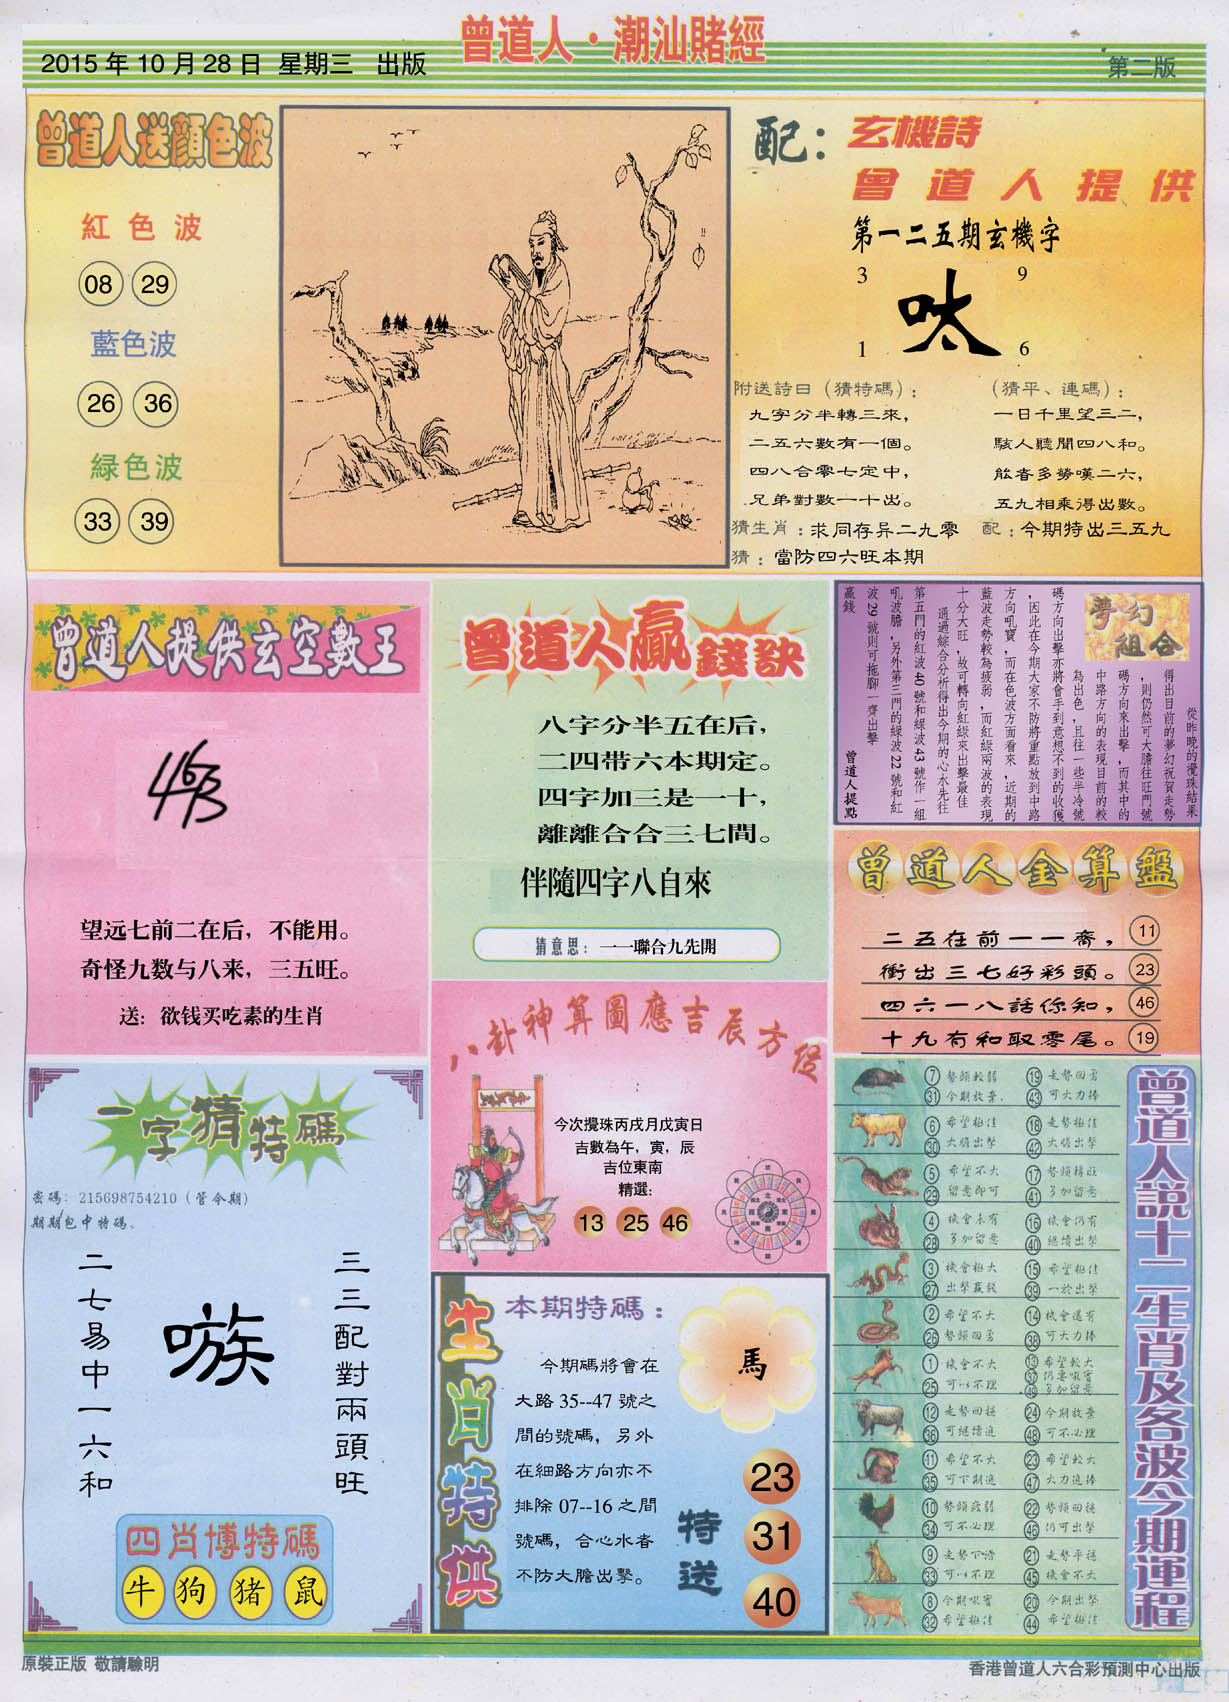 曾道人·潮汕賭經
2015年10月28日 星期三 出版
第二版
曾道人送顏色波
紅色波
08 29
藍色波
26 36
緑色波
33 39
配：玄機詩
曾道人提供
第一二五期玄機字
3 9
呔
1 6
附送詩曰（猜特碼）：
九字分半轉三來，
二五六數有一個。
四八合零七定中，
兄弟對數一十出。
（猜平、連碼）：
一日千里望三二，
駭人聽聞四八和。
能者多勞嘆二六，
五九相乘得出數。
猜生肖：求同存异二九零
配：今期特出三五九
猜：當防四六旺本期
曾道人提供玄空數王
463
望远七前二在后，不能用。
奇怪九数与八来，三五旺。
送：欲钱买吃素的生肖
曾道人贏錢訣
八字分半五在后，
二四带六本期定。
四字加三是一十，
離離合合三七間。
伴隨四字八自來
猜意思：一一聯合九先開
夢幻組合
從昨晚的攪珠結果
得出目前的夢幻祝賀走勢
，則仍然可大膽往旺門號
碼方向來出擊，而其中的
中路方向的表現目前的較
為出色，且往一些半冷號
碼方向出擊亦將會手到意想不到的收獲
，因此在今期大家不防將重點放到中路
方向吼寶，而在色波方面看來，近期的
藍波走勢較為疲弱，而紅綠兩波的表現
十分大旺，故可轉向紅綠來出擊最佳
通過綜合分析得出今期的心水先往
第五門的紅波40號和綠波43號作一組
吼波膽，另外第三門的綠波22號和紅
波29號則可拖腳一齊出擊
贏錢
曾道人提點
曾道人金算盤
二五在前一一齊， 11
衝出三七好彩頭。 23
四六一八話你知， 46
十九有和取零尾。 19
八卦神算圖應吉辰方位
今次攪珠丙戌月戊寅日
吉數為午，寅，辰
吉位東南
精選：
13 25 46
一字猜特碼
密碼：215698754210（管令期）
期期包中特碼。
二七易中一六和
嗾
三三配對兩頭旺
四肖博特碼
牛 狗 猪 鼠
生肖特供
本期特碼：
今期碼將會在
大路35--47號之
間的號碼，另外
在細路方向亦不
排除07--16之間
號碼，合心水者
不防大膽出擊。
馬
特送
23
31
40
曾道人説十二生肖及各波今期運程
7 勢頭較弱 19 走勢回勇
31 今期放棄 43 可大力捧
6 希望極佳 18 走勢極佳
30 大膽出擊 42 大膽出擊
5 希望不大 17 勢頭轉旺
29 留意即可 41 多加留意
4 機會未有 16 機會仍有
28 多加留意 40 繼續出擊
3 機會極大 15 希望極佳
27 出擊贏錢 39 一於出擊
2 希望不大 14 機會還有
26 勢頭回勇 38 可大力捧
1 機會不大 13 希望較大
25 可以不理 37 仍要吼實
49 多加留意
12 走勢回穩 24 今期放棄
36 可繼續追 48 可不必理
11 希望不大 23 希望較大
35 可下期追 47 大力追捧
10 勢頭疲弱 22 勢頭回穩
34 可不必理 46 仍可出擊
9 走勢下滑 21 走勢平穩
33 可以不理 45 機會不大
8 今期吼實 20 今期出擊
32 希望極佳 44 希望極佳
原裝正版 敬請驗明
香港曾道人六合彩預測中心出版